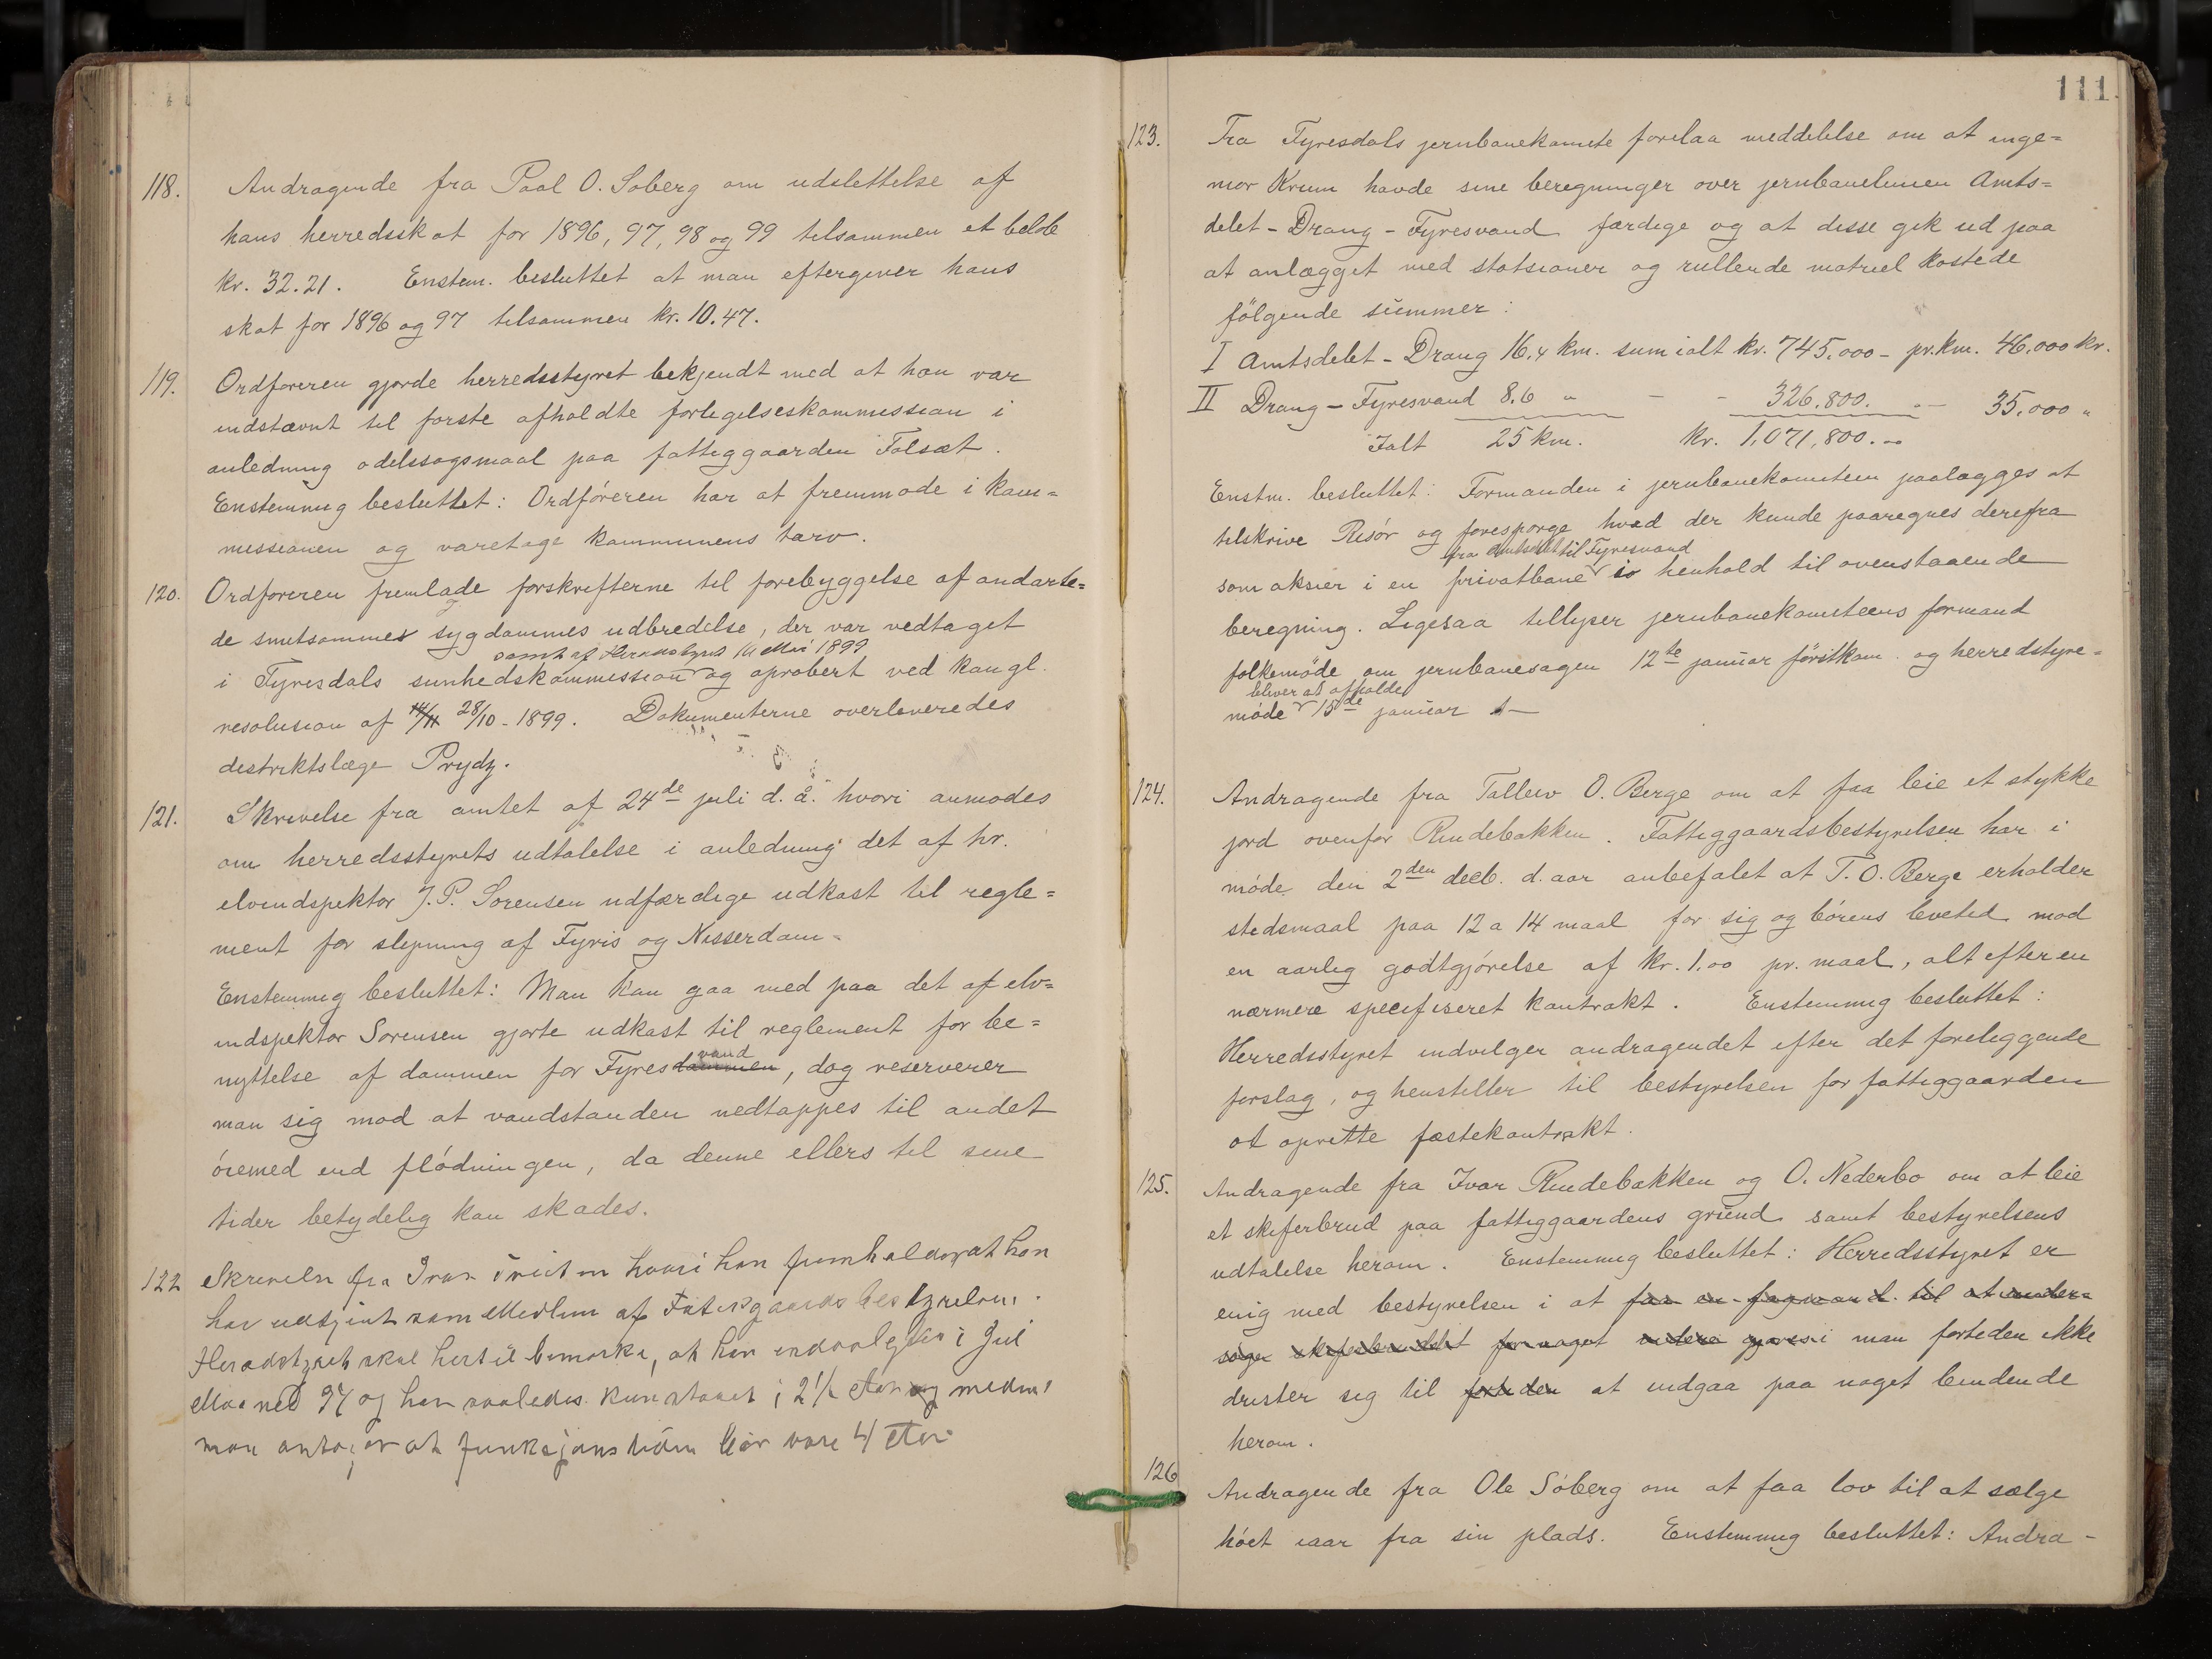 118. Andragende fra Paal O. Soberg om udslettelse af
hans herredsskat for 1896, 97, 98 og 99 tilsammen et belöb
kr. 32.21. Enstem. besluttet at man eftergiver hans
skat for 1896 og 97 tilsammen kr. 10.47.
119. Ordforeren gjorde herredsstyret bekjendt med at han var
indstævnt til forste afholdte forligelseskommission i
anledning odelssogsmaal paa fattiggaarden Folsæt.
Enstemmig besluttet: Ordföreren har at fremmode i kom=
missionen og varetage kommunens tarv.
120. Ordforeren fremlagde forskrifterne til forebyggelse af andarte=
de smitsommes sygdommes udbredelse, der var vedtaget
samt af Herredstyret 14 Mai 1899
i Fyresdals sunhedskommission og aprobert ved kongl.
resolusion af 14/11 28/10 - 1899. Dokumenterne overleveredes
distriktslæge Prydz.
121. Skrivelse fra amtet af 24de juli d. å. hvori anmodes
om herredsstyrets udtalelse i anledning det af hr.
elvindspektor J. P. Sorensen udfærdige udkast til regle=
ment for slipning af Fyris og Nisserdam-
Enstemmig besluttet: Man kan gaa med paa det af elv=
indspektor Sorensen gjorte udkast til reglement for be=
vand
nyttelse af dammen for Fyresdammen, dog reserverer
man sig mod at vandstanden nedtappes til andet
öiemed end flödningen, da denne ellers til sine
tider betydelig kan skades.
122 Skrivelse fra Ivar hvori han fremholder at han
har udtjent som Medlem af Fatigaardsbestyrelsen.
Heradstyret skal hertil bemærke, at han indvalgtes i Juli
Maaned 97 og har saaledes kun staaet i 2 1/2 Aar og medens
man antager at funksjonstiden bör være 4 Aar.
111.
123. Fra Fyresdals jernbanekomite forelaa meddelelse om at inge=
niör Krum havde sine beregninger over jernbanelinien Amts=
delet - Drang - Fyresvand færdige og at disse gik ud paa
at anlægget med stotsioner og rullende matriel kostede
fölgende summer:
I Amtsdelet - Drang 16,4 km. sum ialt kr. 745.000 - pr. km. 46.000 kr.
II Drang - Fyresvand 8.6 " - - 326.800. - 35.000 "
Ialt 25 km. kr. 1,071,800. -
Enstm. besluttet: Formanden i jernbanekomiteen paalægges at
tilskrive Risör og forespörge hvad der kunde paaregnes derefra
fra Amtsdelet til Fyresvand
som aksier i en privatbane i henhold til ovenstaaende
beregning. Ligesaa tillyser jernbanekomiteens formand
folkemöde om jernbanesagen 12te januar förstkom. og herredstyre=
bliver at afholde
möde 15de januar
124. Andragende fra Tallev O. Berge om at faa leie et stykke
jord ovenfor Rindebakken. Fattiggaardsbestyrelsen har i
möde den 2den decb. d. aar anbefalet at T. O. Berge erholder
stedsmaal paa 12 a 14 maal for sig og börens levetid mod
en aarlig godtgjörelse af kr. 1.00 pr. maal, alt efter en
nærmere specifiseret kontrakt. Enstemmig besluttet:
Herredsstyret indvilger andragendet efter det foreliggende
forslag, og henstiller til bestyrelsen for fattiggaarden
at oprette fæstekontrakt.
125. Andragende fra Ivar Rindebakken og O. Nederbo om at leie
et skiferbrud paa fattiggaardens grund samt bestyrelsens
udtalelse herom. Enstemmig besluttet: Herredsstyret er
enig med bestyrelsen i at faa en fagmand til at under=
söge skiferbruddet for noget videre gjores i man fortiden ikke
drister sig til fortiden at indgaa paa noget bindende
herom.
126 Andragende fra Ole Söberg om at faa lov til at sælge
höet iaar fra sin plads. Enstemmig besluttet: Andra-